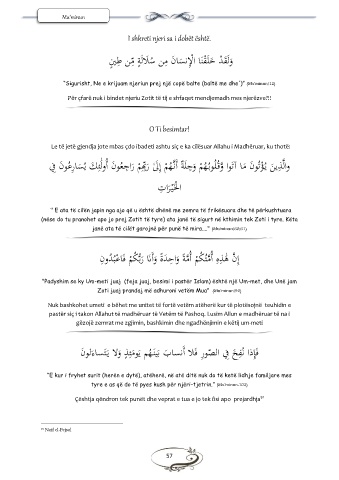 Mu'minun
I shkreti njeri sa i dobët është.
وَلَقَدْ خَلَقْنَا الْإِنسَانَ مِن سُلَالَةٍ مِّن طِينٍ
"Sigurisht, Ne e krijuam njeriun prej një copë balte (baltë me dhe`)" (Mu'minun:12)
Për çfarë nuk i bindet njeriu Zotit të tij e shfaqet mendjemadh mes njerëzve?!!
O Ti besimtar!
Le të jetë gjendja jote mbas çdo ibadeti ashtu siç e ka cilësuar Allahu i Madhëruar, ku thotë:
وَالَّذِينَ يُؤْتُونَ مَا آتَوا وَّقُلُوبُهُمْ وَجِلَةٌ أَنَّهُمْ إِلَىٰ رَبِّهِمْ رَاجِعُونَ أُولَٰئِكَ يُسَارِعُونَ فِي
الْخَيْرَاتِ
" E ata të cilën japin nga ajo që u është dhënë me zemra të frikësuara dhe të përkushtuara
(nëse do tu pranohet apo jo prej Zotit të tyre) ata janë të sigurt në kthimin tek Zoti i tyre. Këta
janë ata të cilët garojnë për punë të mira...."
إِنَّ هَٰذِهِ أُمَّتُكُمْ أُمَّةً وَاحِدَةً وَأَنَا رَبُّكُمْ فَاعْبُدُونِ
"Padyshim se ky Um-meti juaj (feja juaj, besimi i pastër Islam) është një Um-met, dhe Unë jam
Zoti juaj prandaj më adhuroni vetëm Mua"
Nuk bashkohet umeti e bëhet me unitet të fortë vetëm atëherë kur të plotësojnë teuhidin e
pastër siç i takon Allahut të madhëruar të Vetëm të Pashoq. Lusim Allun e madhëruar të na i
gëzojë zemrat me zgjimin, bashkimin dhe ngadhënjimin e këtij um-meti
فَإِذَا نُفِخَ فِي الصُّورِ فَلَا أَنسَابَ بَيْنَهُمْ يَوْمَئِذٍ وَلَا يَتَسَاءَلُونَ
"E kur i fryhet surit (herën e dytë), atëherë, në atë ditë nuk do të ketë lidhje familjare mes
tyre e as që do të pyes kush për njëri-tjetrin." (Mu'minun:101)
Çështja qëndron tek punët dhe veprat e tua e jo tek fisi apo prejardhja
57